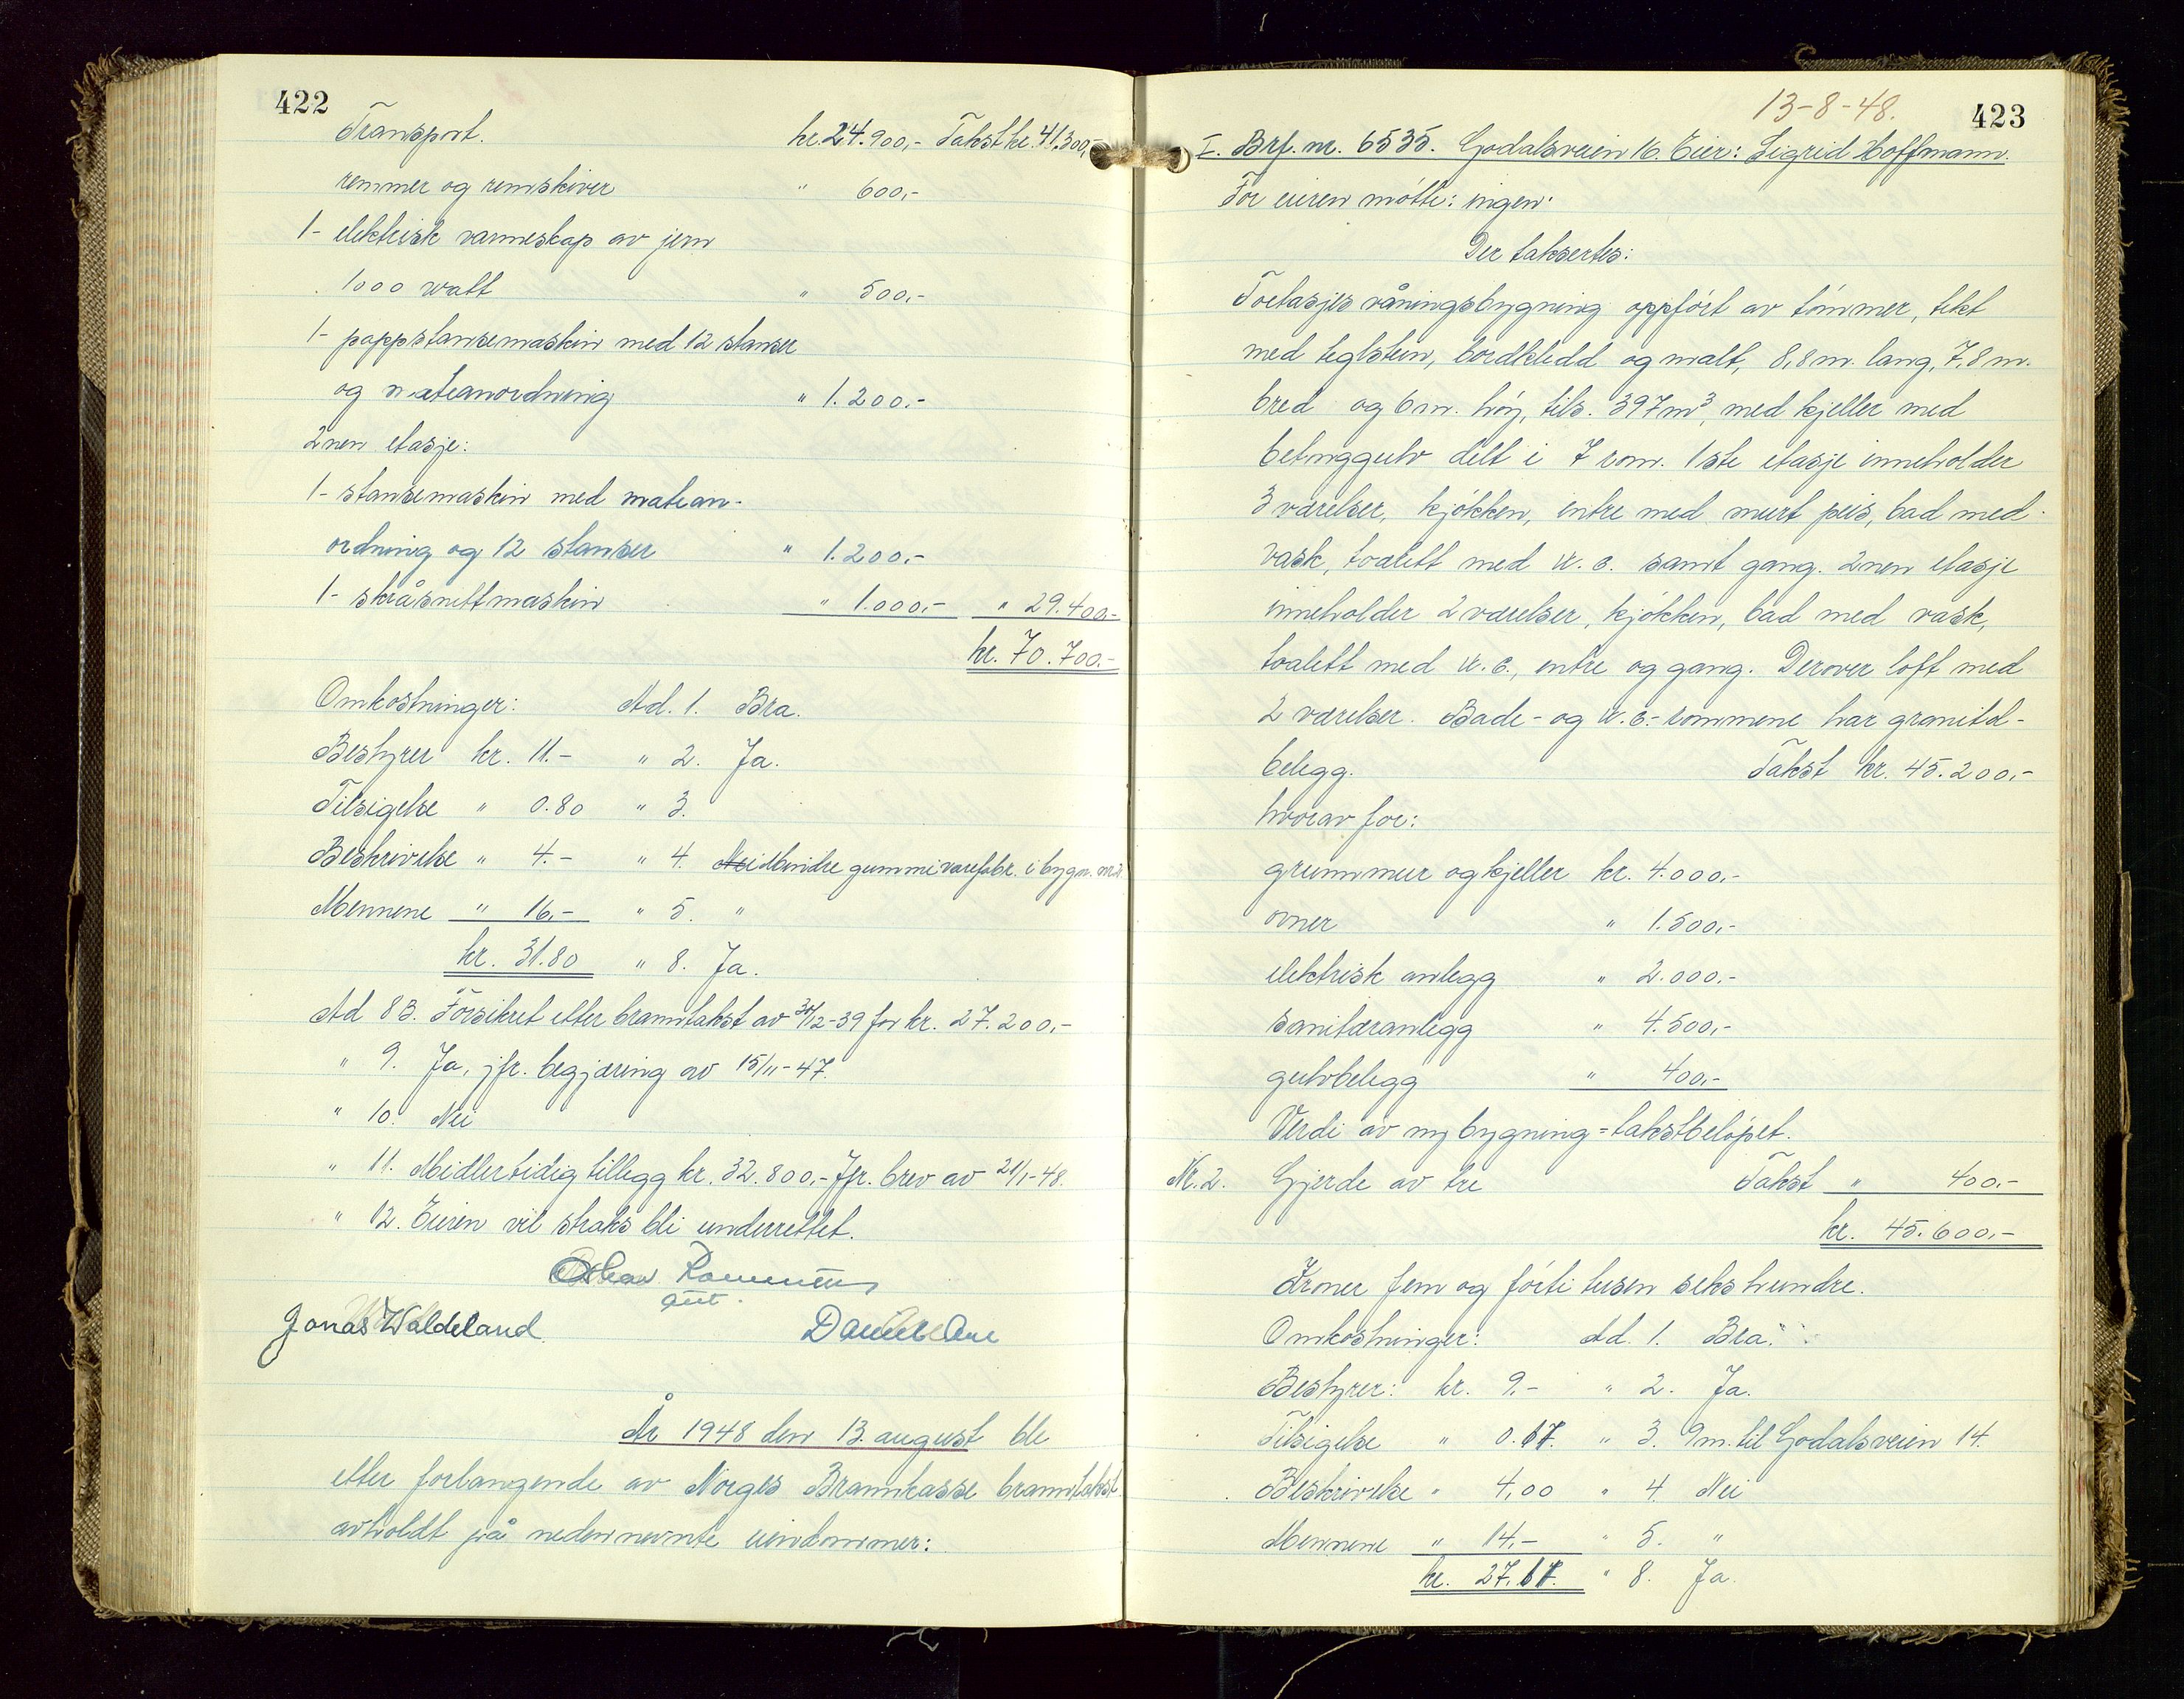 422
Transport. kr. 24.900,- Takst kr. 41.300,-
remmer og remskiver " 600,-
1- elektrisk varmeskap av jern
1000 watt " 500,-
1- pappstansemaskin med 12 stanser
og mateanordning " 1.200.-
2nen etasje:
1- stansemaskin med matean-
ordning og 12 stanser " 1.200.-
1- skråsnittmaskin " 1.000.- " 29.400.-
kr. 70.700.-
Omkostninger: Ad. 1. Bra.
Bestyrer kr. 11.- " 2. Ja.
Tilsigelse " 0.80 " 3.
Beskrivelse " 4.- " 4. Nei Mindre gummivarefabr. i bygn. nr. 2.
Mennene " 16,- " 5. "
kr. 31.80 " 8. Ja.
Ad 8 B. Forsikret etter branntakst av 30/12-39 for kr. 27.200,-
" 9. Ja, jfr. begjæring av 15/11-47.
" 10. Nei
" 11. Meidlertidig tillegg kr. 32.800,- Jfr. brev av 21/1-48.
" 12. Eieren vil straks bli underrettet.
Jonas Waldeland.
År 1948 den 13. august ble
etter forlangende av Norges Brannkasse branntakst
avholdt på nedennevnte eiendommer:
13-8-48.
423
I. Brf. nr. 6535. Godalsveien 16. Eier: Sigrid Hoffmann.
For eieren møtte: ingen.
Der taksertes:
Toetasjes våningsbygning oppført av tømmer, tekt
med teglstein, bordkledd og malt, 8,8 m. lang, 7,8 m.
bred og 6 m. høy, tils. 397 m³, med kjeller med
betonggulv delt i 7 rom. 1ste etasje inneholder
3 værelser, kjøkken, entre med murt peis, bad med
vask, toalett med w.c. samt gang. 2nen etasje
inneholder 2 værelser, kjøkken, bad med vask,
toalett med w.c., entre og gang. Derover loft med
2 værelser. Bade- og w.c.-rommene har granitol-
belegg. Takst kr. 45.200,-
hvorav for:
grunnmur og kjeller kr. 4.000,-
ovner " 1.500,-
elektrisk anlegg " 2.000.-
sanitæranlegg " 4.500,-
gulvbelegg " 400,-
Verdi av ny bygning = takstbeløpet.
Nr. 2. Gjerde av tre Takst " 400.-
kr. 45.600,-
Kroner fem og førti tusen seks hundre.
Omkostninger: Ad. 1. Bra.
Bestyrer: kr. 9.- " 2. Ja.
Tilsigelse " 0.67. " 3. 9 m. til Godalsveien 14.
Beskrivelse " 4,00 " 4. Nei
Mennene " 14,- " 5. "
kr. 27.67. " 8. Ja.